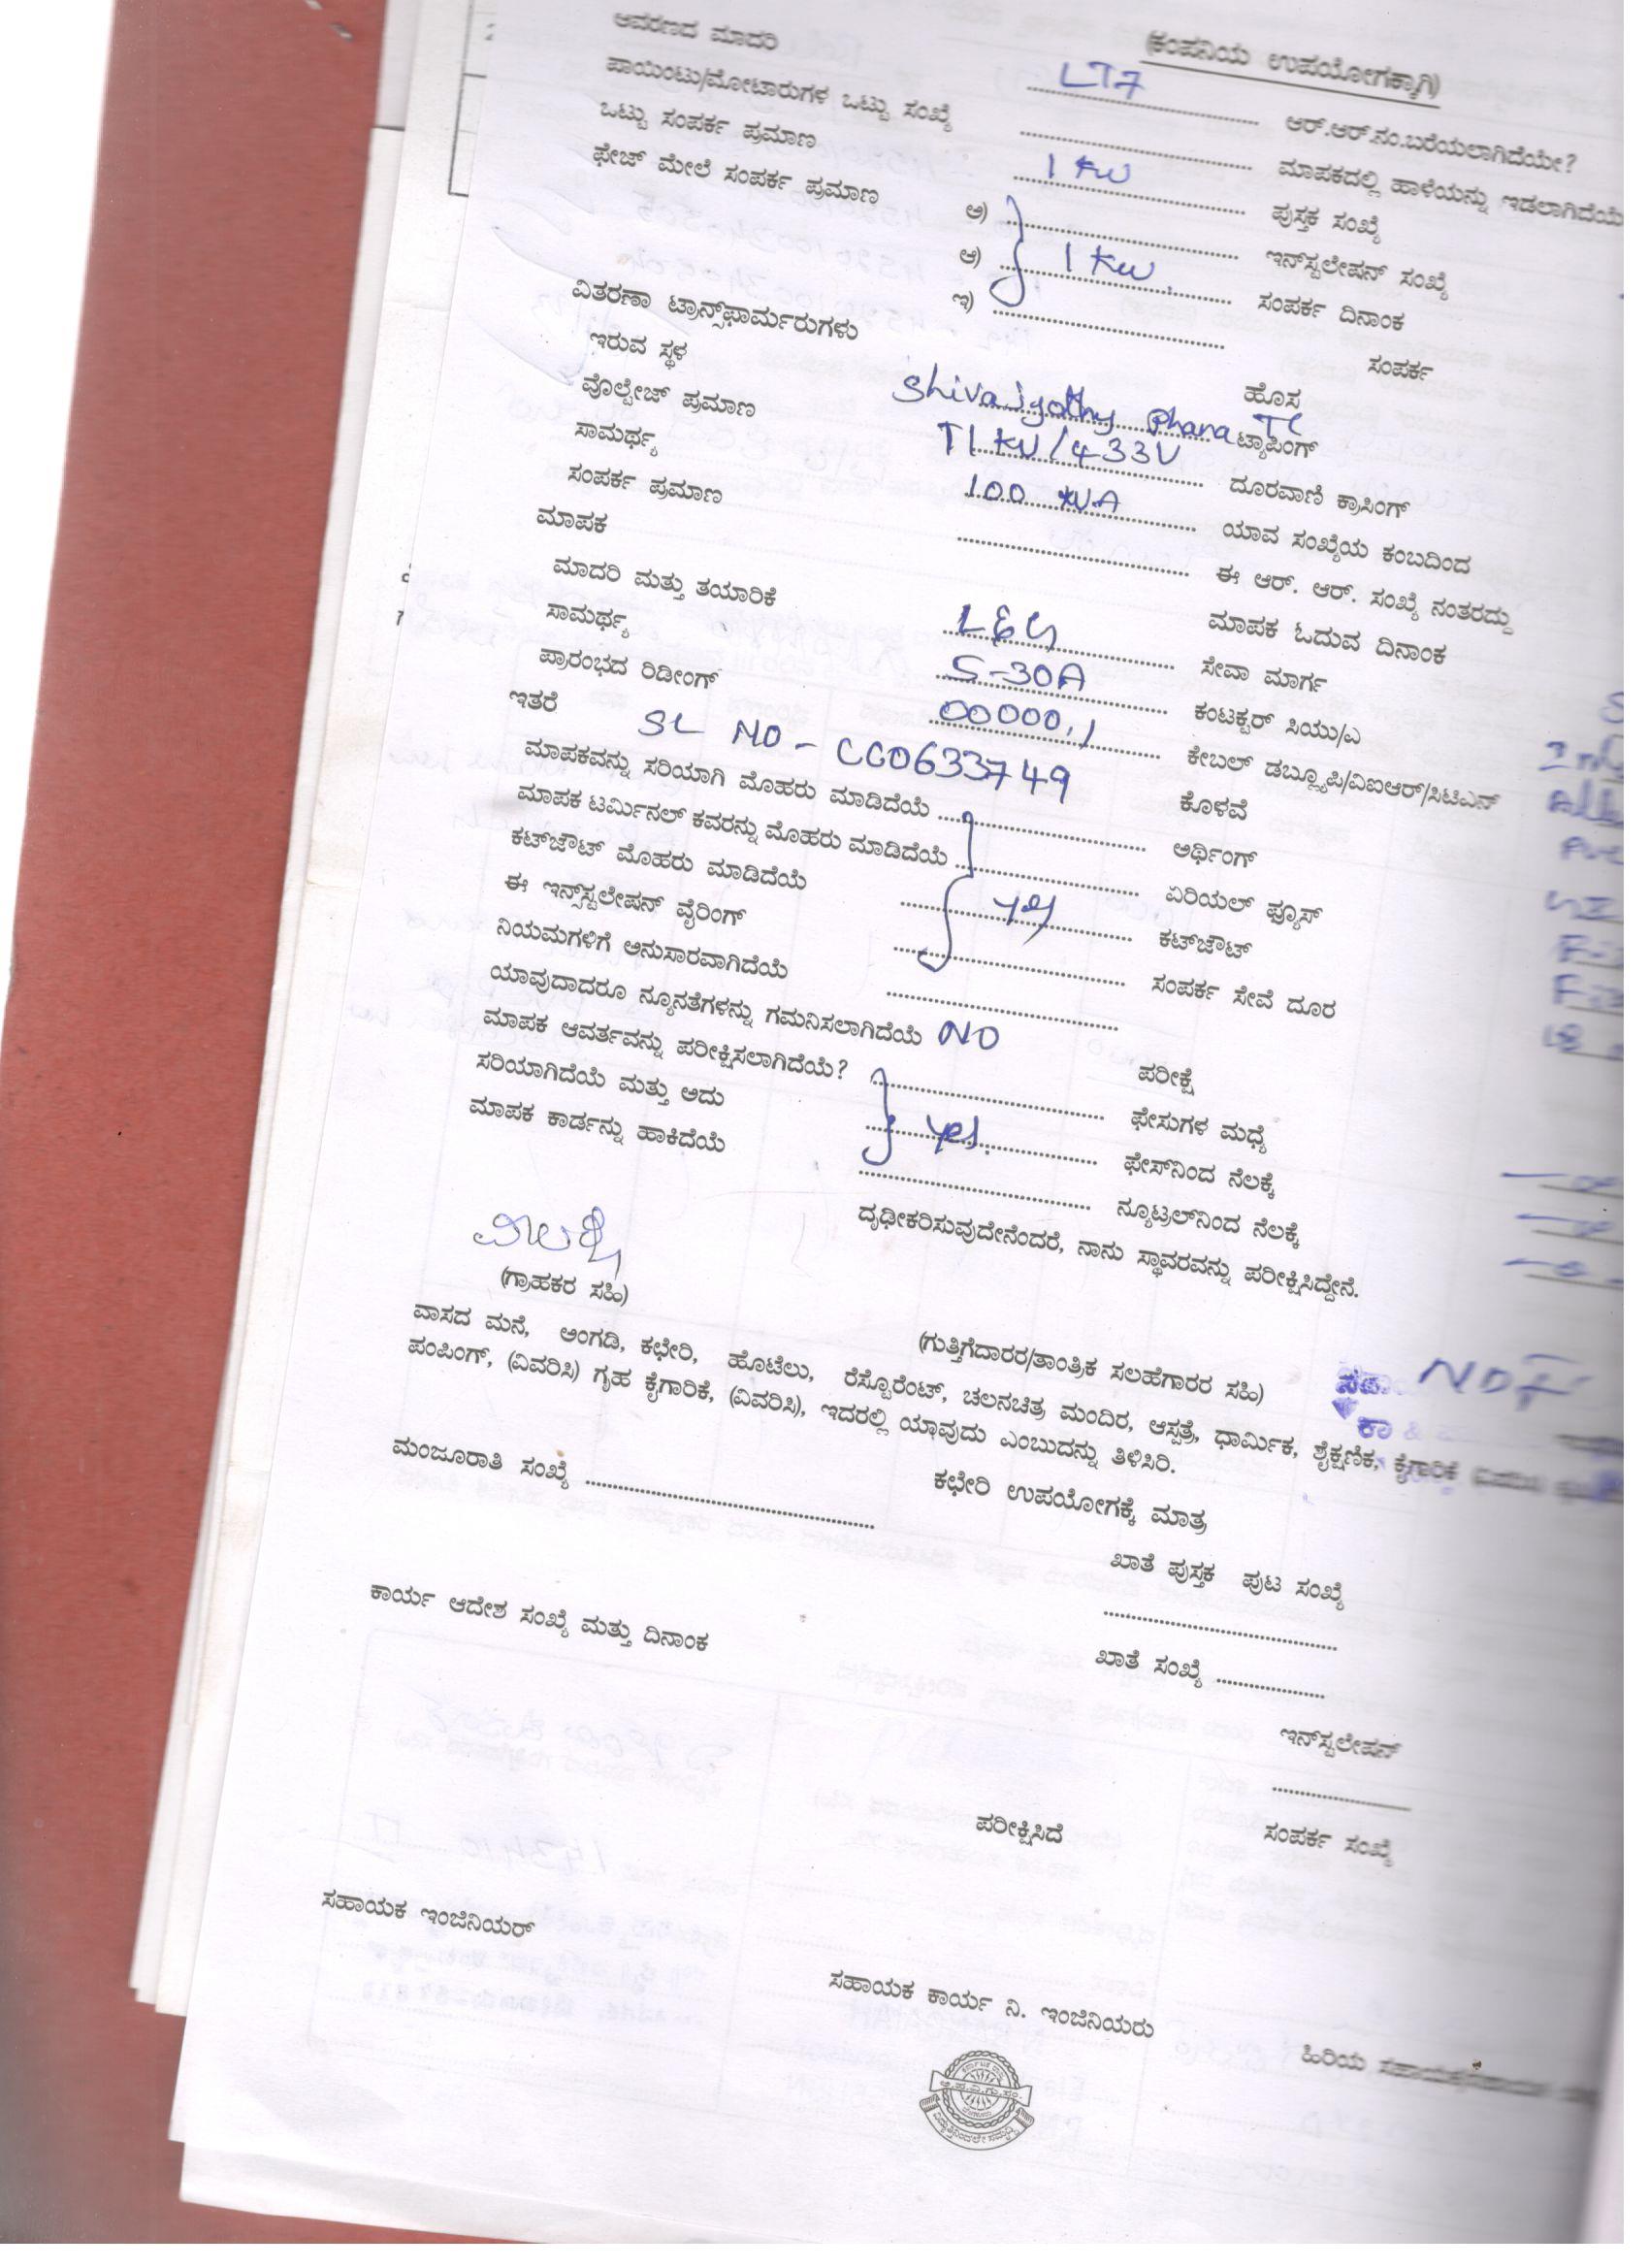 (ಕಂಪನಿಯ ಉಪಯೋಗಕ್ಕಾಗಿ)
ಆವರಣದ ಮಾದರಿ LT7 ಆರ್.ಆರ್.ನಂ.ಬರೆಯಲಾಗಿದೆಯೇ?
ಪಾಯಿಂಟು/ಮೋಟಾರುಗಳ ಒಟ್ಟು ಸಂಖ್ಯೆ ಮಾಪಕದಲ್ಲಿ ಹಾಳೆಯನ್ನು ಇಡಲಾಗಿದೆಯೆ
ಒಟ್ಟು ಸಂಪರ್ಕ ಪ್ರಮಾಣ 1 KW ಪುಸ್ತಕ ಸಂಖ್ಯೆ
ಫೇಜ್ ಮೇಲೆ ಸಂಪರ್ಕ ಪ್ರಮಾಣ ಅ) ಇನ್‌ಸ್ಟಲೇಷನ್ ಸಂಖ್ಯೆ
ಆ) 1 KW ಸಂಪರ್ಕ ದಿನಾಂಕ
ಇ)
ಸಂಪರ್ಕ
ವಿತರಣಾ ಟ್ರಾನ್ಸ್‌ಫಾರ್ಮರುಗಳು ಹೊಸ
ಇರುವ ಸ್ಥಳ TC ಟ್ಯಾಪಿಂಗ್
ವೊಲ್ಟೇಜ್ ಪ್ರಮಾಣ KV/433V ದೂರವಾಣಿ ಕ್ರಾಸಿಂಗ್
ಸಾಮರ್ಥ್ಯ 100 KVA ಯಾವ ಸಂಖ್ಯೆಯ ಕಂಬದಿಂದ
ಸಂಪರ್ಕ ಪ್ರಮಾಣ ಈ ಆರ್. ಆರ್. ಸಂಖ್ಯೆ ನಂತರದ್ದು
ಮಾಪಕ ಮಾಪಕ ಓದುವ ದಿನಾಂಕ
ಮಾದರಿ ಮತ್ತು ತಯಾರಿಕೆ L&G ಸೇವಾ ಮಾರ್ಗ
ಸಾಮರ್ಥ್ಯ 5-30A ಕಂಟಕ್ಟರ್ ಸಿಯು/ಎ
ಪ್ರಾರಂಭದ ರಿಡೀಂಗ್ 00000.1 ಕೇಬಲ್ ಡಬ್ಲ್ಯೂಪಿ/ವಿಐಆರ್/ಸಿಟಿಎನ್
ಇತರೆ SL NO - CG0633749 ಕೊಳವೆ
ಮಾಪಕವನ್ನು ಸರಿಯಾಗಿ ಮೊಹರು ಮಾಡಿದೆಯೆ ಅರ್ಥಿಂಗ್
ಮಾಪಕ ಟರ್ಮಿನಲ್ ಕವರನ್ನು ಮೊಹರು ಮಾಡಿದೆಯೆ ಏರಿಯಲ್ ಫ್ಯೂಸ್
ಕಟ್‌ಜೌಟ್ ಮೊಹರು ಮಾಡಿದೆಯೆ yes ಕಟ್‌ಜೌಟ್
ಈ ಇನ್ಸ್‌ಸ್ಟಲೇಷನ್ ವೈರಿಂಗ್ ಸಂಪರ್ಕ ಸೇವೆ ದೂರ
ನಿಯಮಗಳಿಗೆ ಅನುಸಾರವಾಗಿದೆಯೆ
ಯಾವುದಾದರೂ ನ್ಯೂನತೆಗಳನ್ನು ಗಮನಿಸಲಾಗಿದೆಯೆ NO ಪರೀಕ್ಷೆ
ಮಾಪಕ ಆವರ್ತವನ್ನು ಪರೀಕ್ಷಿಸಲಾಗಿದೆಯೆ? ಫೇಸುಗಳ ಮಧ್ಯೆ
ಸರಿಯಾಗಿದೆಯೆ ಮತ್ತು ಅದು yes. ಫೇಸ್‌ನಿಂದ ನೆಲಕ್ಕೆ
ಮಾಪಕ ಕಾರ್ಡನ್ನು ಹಾಕಿದೆಯೆ ನ್ಯೂಟ್ರಲ್‌ನಿಂದ ನೆಲಕ್ಕೆ
ದೃಢೀಕರಿಸುವುದೇನೆಂದರೆ, ನಾನು ಸ್ಥಾವರವನ್ನು ಪರೀಕ್ಷಿಸಿದ್ದೇನೆ.
(ಗ್ರಾಹಕರ ಸಹಿ)
(ಗುತ್ತಿಗೆದಾರರ/ತಾಂತ್ರಿಕ ಸಲಹೆಗಾರರ ಸಹಿ)
ವಾಸದ ಮನೆ, ಅಂಗಡಿ, ಕಛೇರಿ, ಹೊಟೆಲು, ರೆಸ್ಟೊರೆಂಟ್, ಚಲನಚಿತ್ರ ಮಂದಿರ, ಆಸ್ಪತ್ರೆ, ಧಾರ್ಮಿಕ, ಶೈಕ್ಷಣಿಕ, ಕೈಗಾರಿಕೆ
ಪಂಪಿಂಗ್, (ವಿವರಿಸಿ) ಗೃಹ ಕೈಗಾರಿಕೆ, (ವಿವರಿಸಿ), ಇದರಲ್ಲಿ ಯಾವುದು ಎಂಬುದನ್ನು ತಿಳಿಸಿರಿ.
ಕಛೇರಿ ಉಪಯೋಗಕ್ಕೆ ಮಾತ್ರ
ಮಂಜೂರಾತಿ ಸಂಖ್ಯೆ
ಖಾತೆ ಪುಸ್ತಕ ಪುಟ ಸಂಖ್ಯೆ
ಕಾರ್ಯ ಆದೇಶ ಸಂಖ್ಯೆ ಮತ್ತು ದಿನಾಂಕ ಖಾತೆ ಸಂಖ್ಯೆ
ಇನ್‌ಸ್ಟಲೇಷನ್
ಪರೀಕ್ಷಿಸಿದೆ ಸಂಪರ್ಕ ಸಂಖ್ಯೆ
ಸಹಾಯಕ ಇಂಜಿನಿಯರ್
ಸಹಾಯಕ ಕಾರ್ಯ ನಿ. ಇಂಜಿನಿಯರು
ಹಿರಿಯ